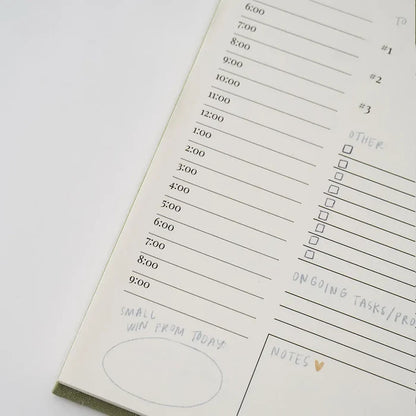 6:00
7:00
8:00
9:00
10:00
11:00
12:00
1:00
2:00
3:00
4:00
5:00
6:00
7:00
8:00
9:00
SMALL
WIN FROM TODAY
TO
#1
#2
#3
OTHER
ONGOING TASKS/PRO
NOTES